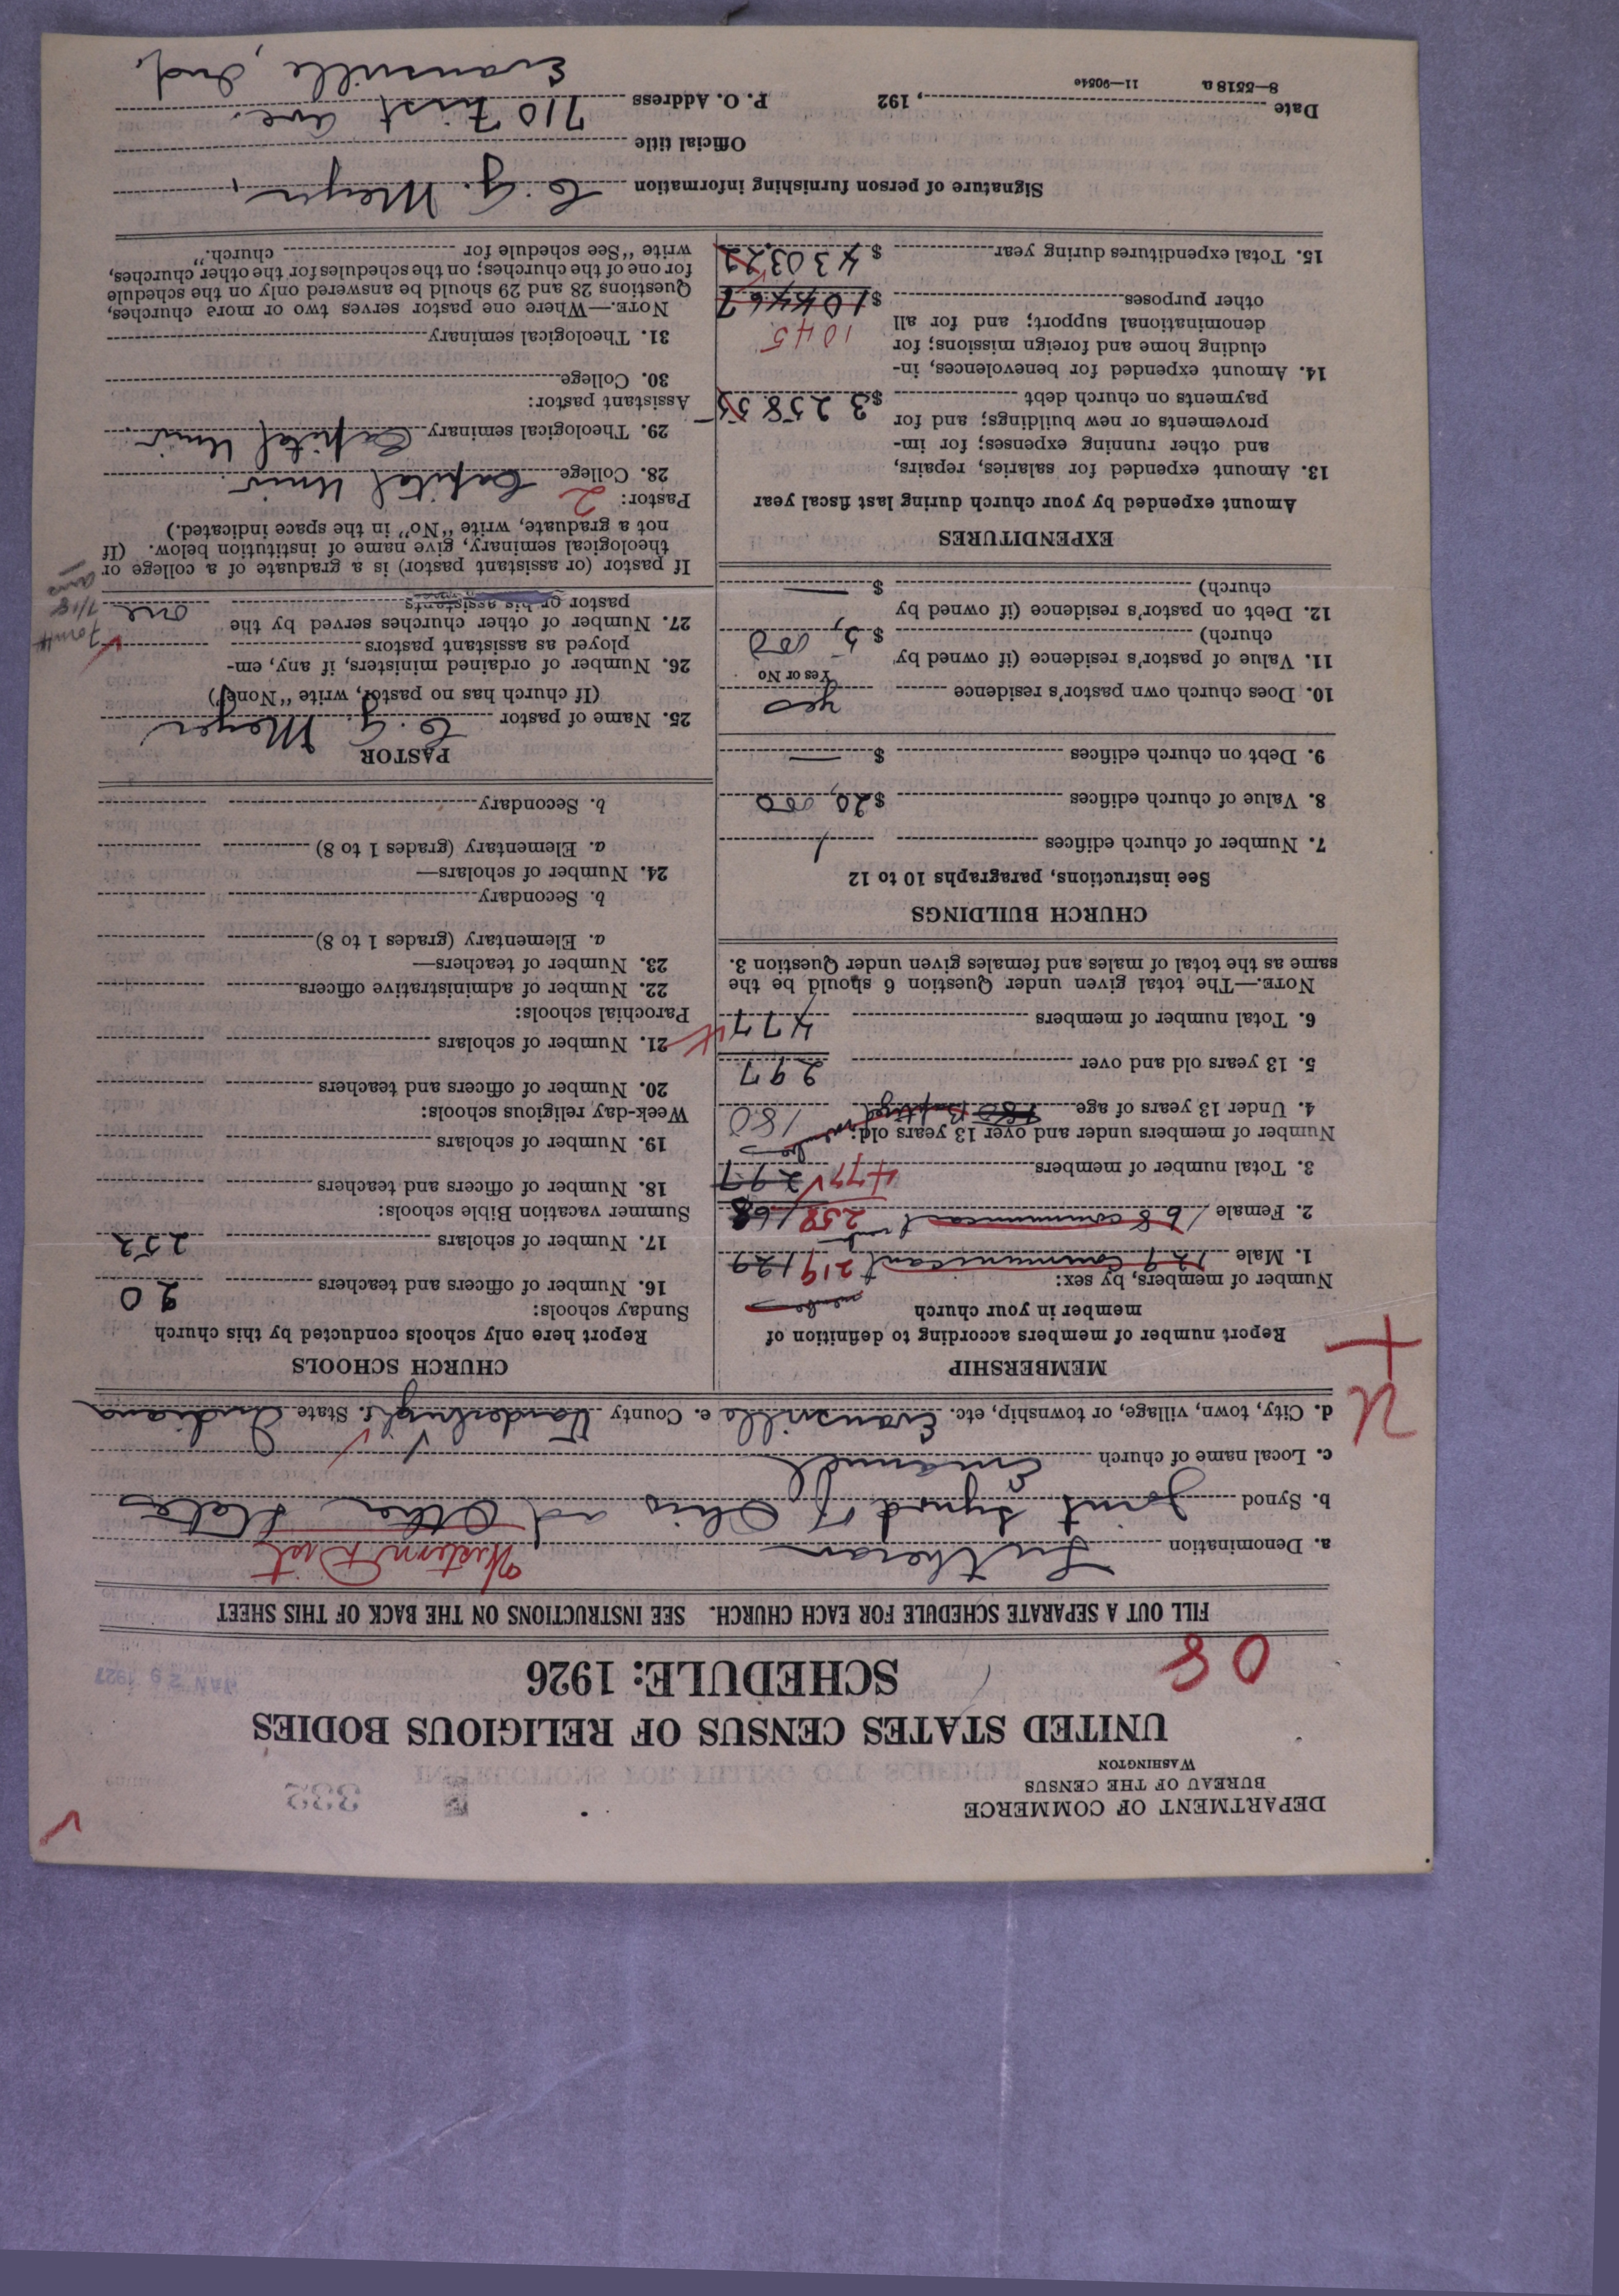 DEPARTMENT OF COMMERCE
BUREAU OF THE CENSUS
WASHINGTON
335
UNITED STATES CENSUS OF RELIGIOUS BODIES
SCHEDULE: 1926
08
JAN 29 1927
FILL OUT A SEPARATE SCHEDULE FOR EACH CHURCH. SEE INSTRUCTIONS ON THE BACK OF THIS SHEET
a. Denomination Lutheran Western Dist
b. Synod Joint Synod of Ohio ad Other States
c. Local name of church Emanuel
d. City, town, village, or township, etc. Evansville e. County Vanderburgh f. State Indiana
U
MEMBERSHIP
Report number of members according to definition of
member in your church
Number of members, by sex:
1. Male 129 communicant 219 129
2. Female 168 communicant 258 168
3. Total number of members 477 297
Number of members under and over 13 years old:
4. Under 13 years of age 180 Baptized 180
5. 13 years old and over 297
6. Total number of members 477
NOTE.—The total given under Question 6 should be the
same as the total of males and females given under Question 3.
CHURCH BUILDINGS
See instructions, paragraphs 10 to 12
7. Number of church edifices 1
8. Value of church edifices $20,000
9. Debt on church edifices $ —
10. Does church own pastor's residence yes
Yes or No
11. Value of pastor's residence (if owned by
church) $5,000
12. Debt on pastor's residence (if owned by
church) $ —
EXPENDITURES
Amount expended by your church during last fiscal year
13. Amount expended for salaries, repairs,
and other running expenses; for im-
provements or new buildings; and for
payments on church debt $3258.55
14. Amount expended for benevolences, in-
cluding home and foreign missions; for
denominational support; and for all 1045
other purposes $1044.67
15. Total expenditures during year $4303.22
CHURCH SCHOOLS
Report here only schools conducted by this church
Sunday schools:
16. Number of officers and teachers 20
17. Number of scholars 252
Summer vacation Bible schools:
18. Number of officers and teachers
19. Number of scholars
Week-day religious schools:
20. Number of officers and teachers
21. Number of scholars
Parochial schools:
22. Number of administrative officers
23. Number of teachers—
a. Elementary (grades 1 to 8)
b. Secondary
24. Number of scholars—
a. Elementary (grades 1 to 8)
b. Secondary
PASTOR
25. Name of pastor C. G. Meyer
(If church has no pastor, write "None")
26. Number of ordained ministers, if any, em-
ployed as assistant pastors
27. Number of other churches served by the
pastor or his assistants one
If pastor (or assistant pastor) is a graduate of a college or
theological seminary, give name of institution below. (If
not a graduate, write "No" in the space indicated.)
Pastor: 2
28. College Capital Univ
29. Theological seminary Capital Univ.
Assistant pastor:
30. College
31. Theological seminary
NOTE.—Where one pastor serves two or more churches,
Questions 28 and 29 should be answered only on the schedule
for one of the churches; on the schedules for the other churches,
write "See schedule for church."
Signature of person furnishing information C. G. Meyer,
Official title
Date , 192 P. O. Address 710 First Ave.
8—5518 a 11—9054c
Evansville, Ind.